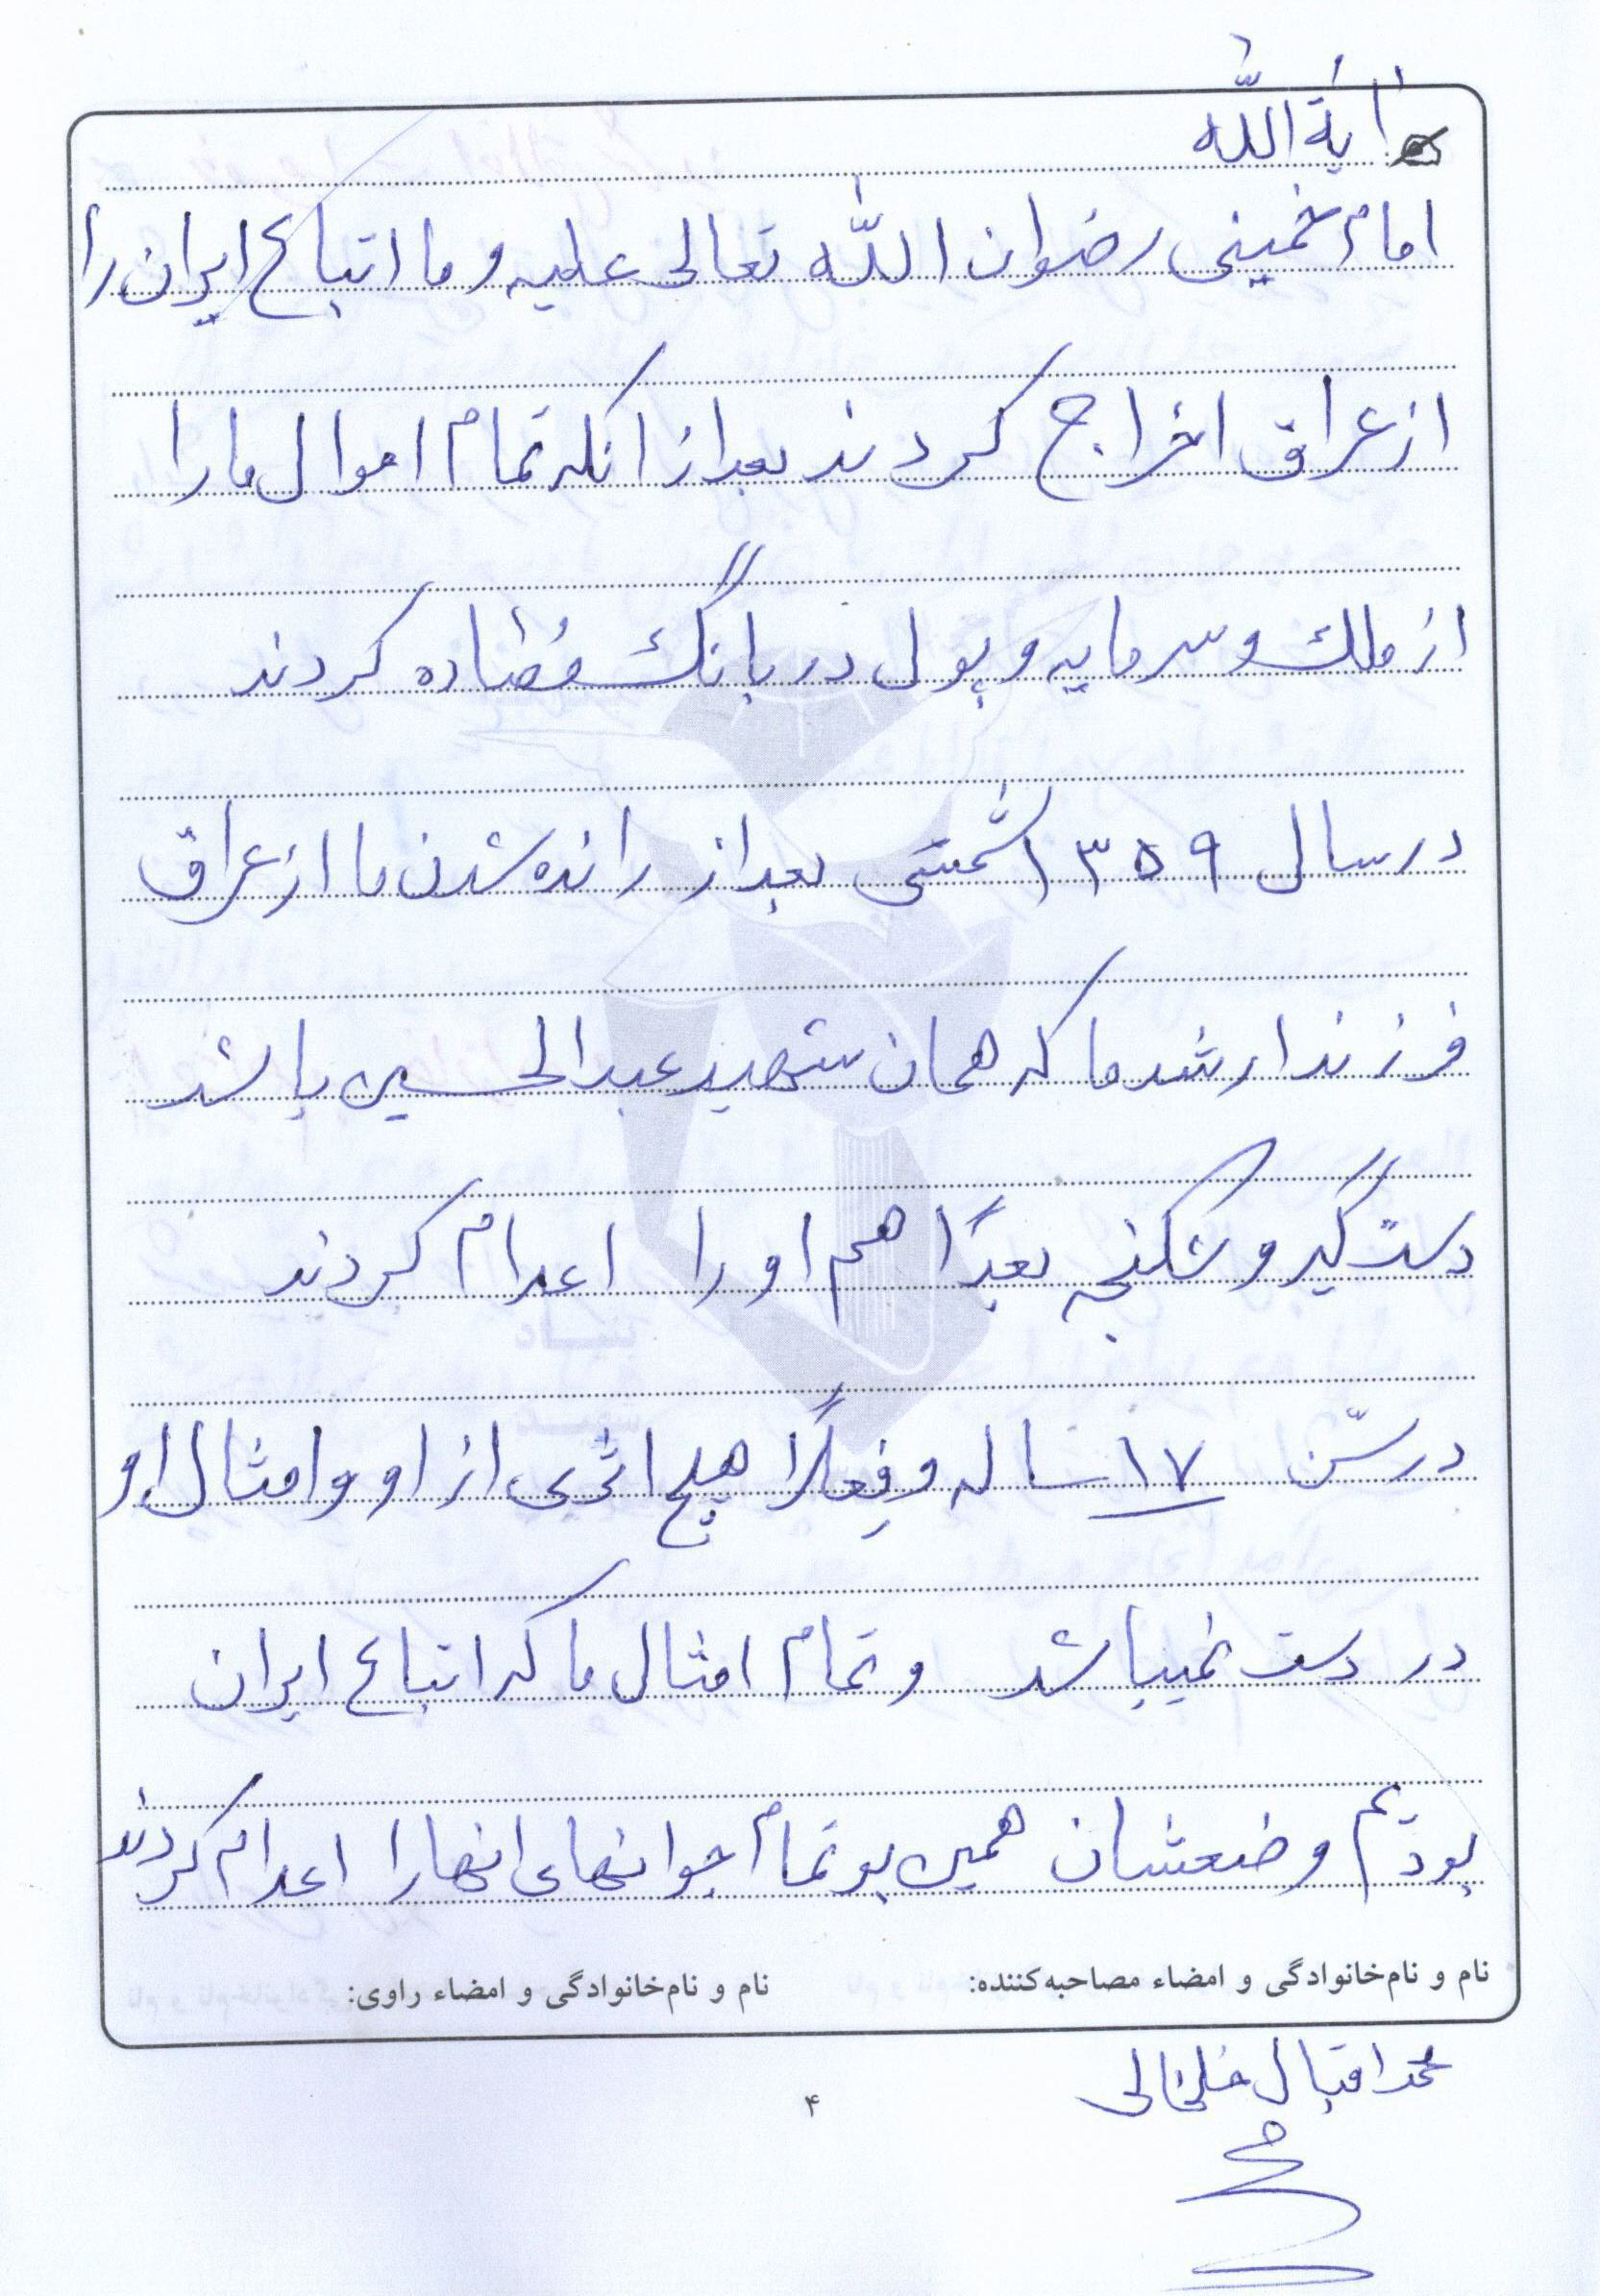 آیة الله
امام خمینی رضوان الله تعالی علیه و ما اتباع ایران را
از عراق اخراج کردند بعد از انکه تمام اموال ما را
از ملک و سرمایه و پول در بانگ مضاده کردند
در سال ۱۳۵۹ شمسی بعد از رانده شدن ما از عراق
فرزند ارشد ما که همان شهید عبدالحسین باشد
دستگیر و شکنجه بعدًا هم او را اعدام کردند
در سّن ۱۷ ساله و فعلًا هیچ اثری از او و امثال او
در دست نمیباشد و تمام امثال ما که اتباع ایران
بودیم وضعشان همین بو تمام جوانهای انها را اعدام کردند
نام و نام‌خانوادگی و امضاء مصاحبه‌کننده: نام و نام‌خانوادگی و امضاء راوی:
محمد اقبال خلخالی
۴